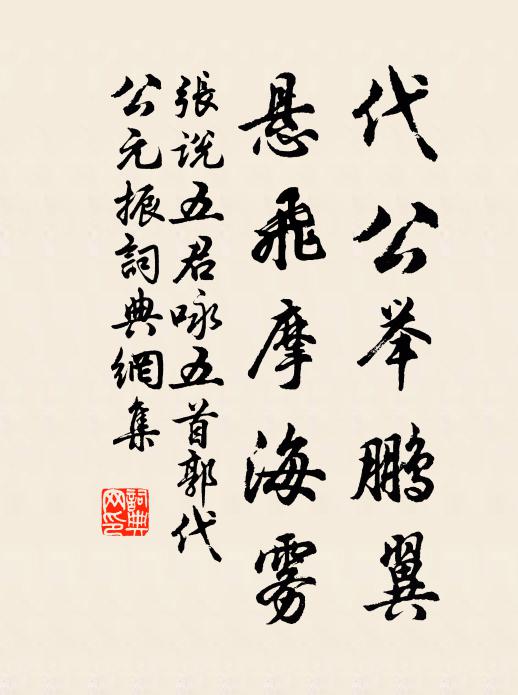 代公举鹏翼
悬飛摩海雾
張説五君咏五首郭代
公元振詞典網集
詞典网印